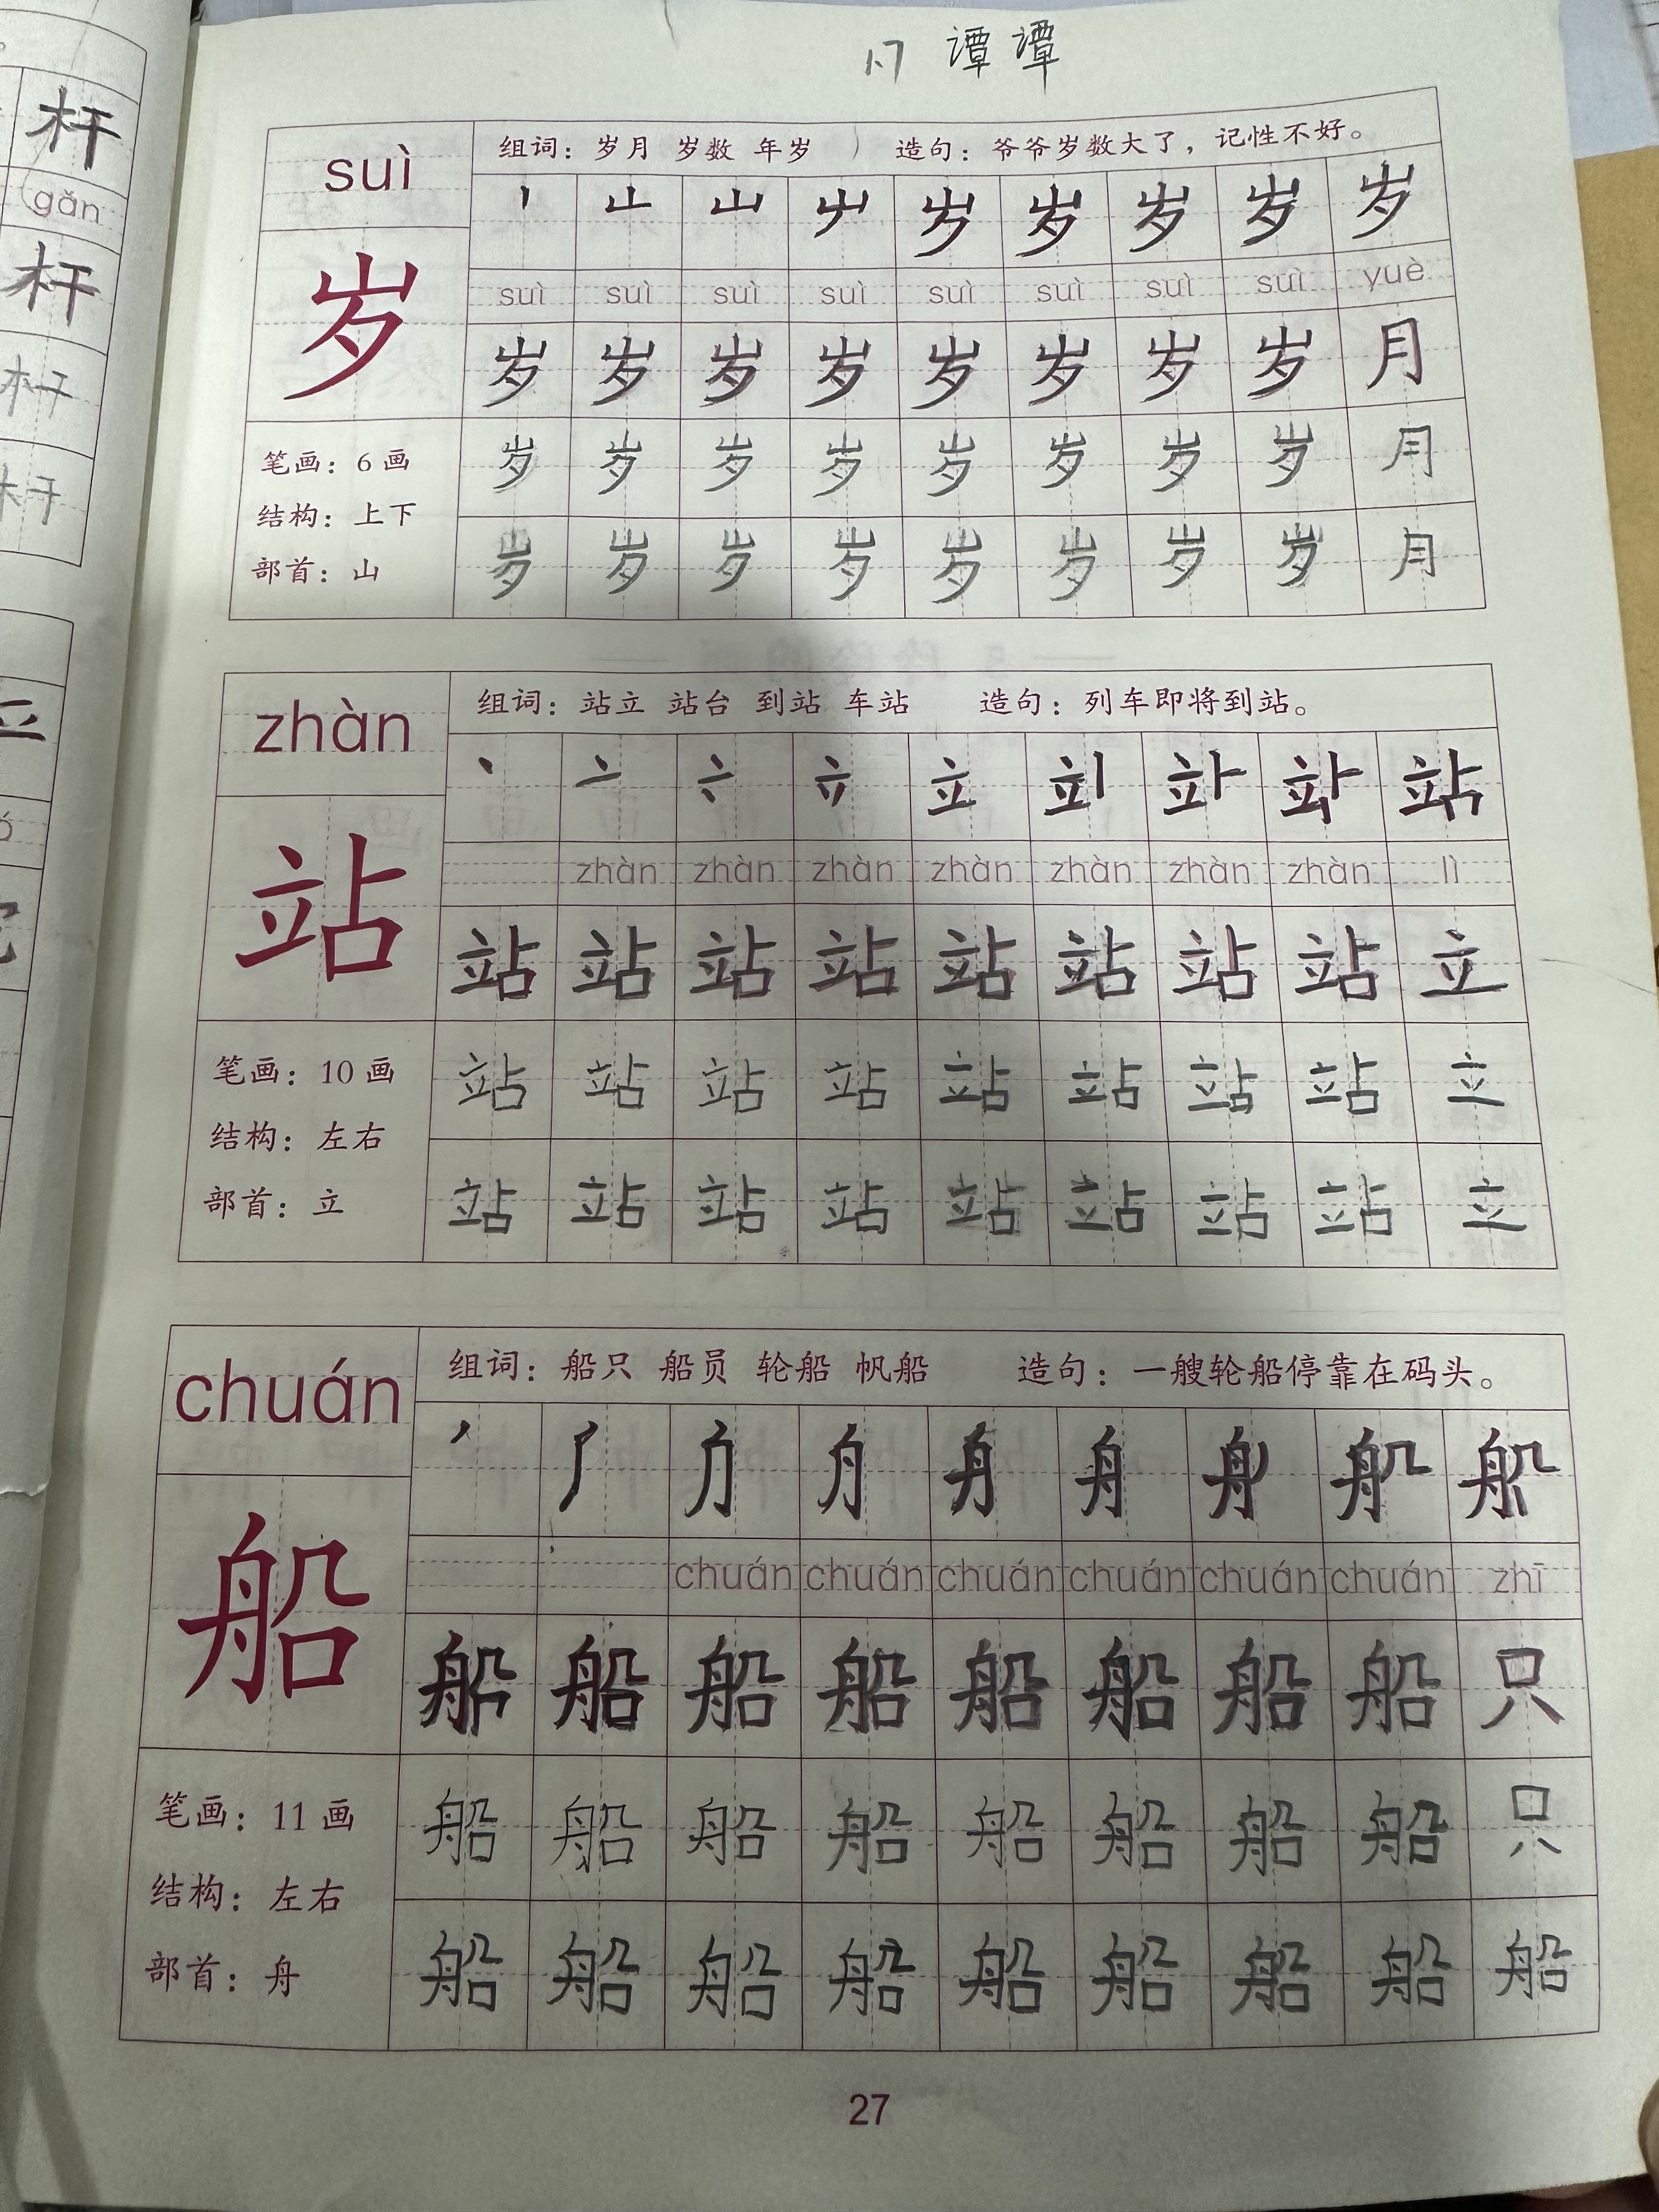 谭谭
suì
组词：岁月 岁数 年岁 造句：爷爷岁数大了，记性不好。
岁 岁 岁 岁
suì suì suì suì suì suì suì suì yuè
岁
岁 岁 岁 岁 岁 岁 岁 岁 月
笔画：6 画
结构：上下
部首：山
岁 岁 岁 岁 岁 岁 岁 岁 月
岁 岁 岁 岁 岁 岁 岁 岁 月
zhàn
组词：站立 站台 到站 车站 造句：列车即将到站。
zhàn zhàn zhàn zhàn zhàn zhàn zhàn lì
站
站 站 站 站 站 站 站 站 立
笔画：10 画
结构：左右
部首：立
站 站 站 站 站 站 站 站 立
站 站 站 站 站 站 站 站 立
chuán
组词：船只 船员 轮船 帆船 造句：一艘轮船停靠在码头。
chuán chuán chuán chuán chuán chuán zhī
船
船 船 船 船 船 船 船 只
笔画：11 画
结构：左右
部首：舟
船 船 船 船 船 船 船 船 只
船 船 船 船 船 船 船 船 船
27
杆
gǎn
杆
杆
杆